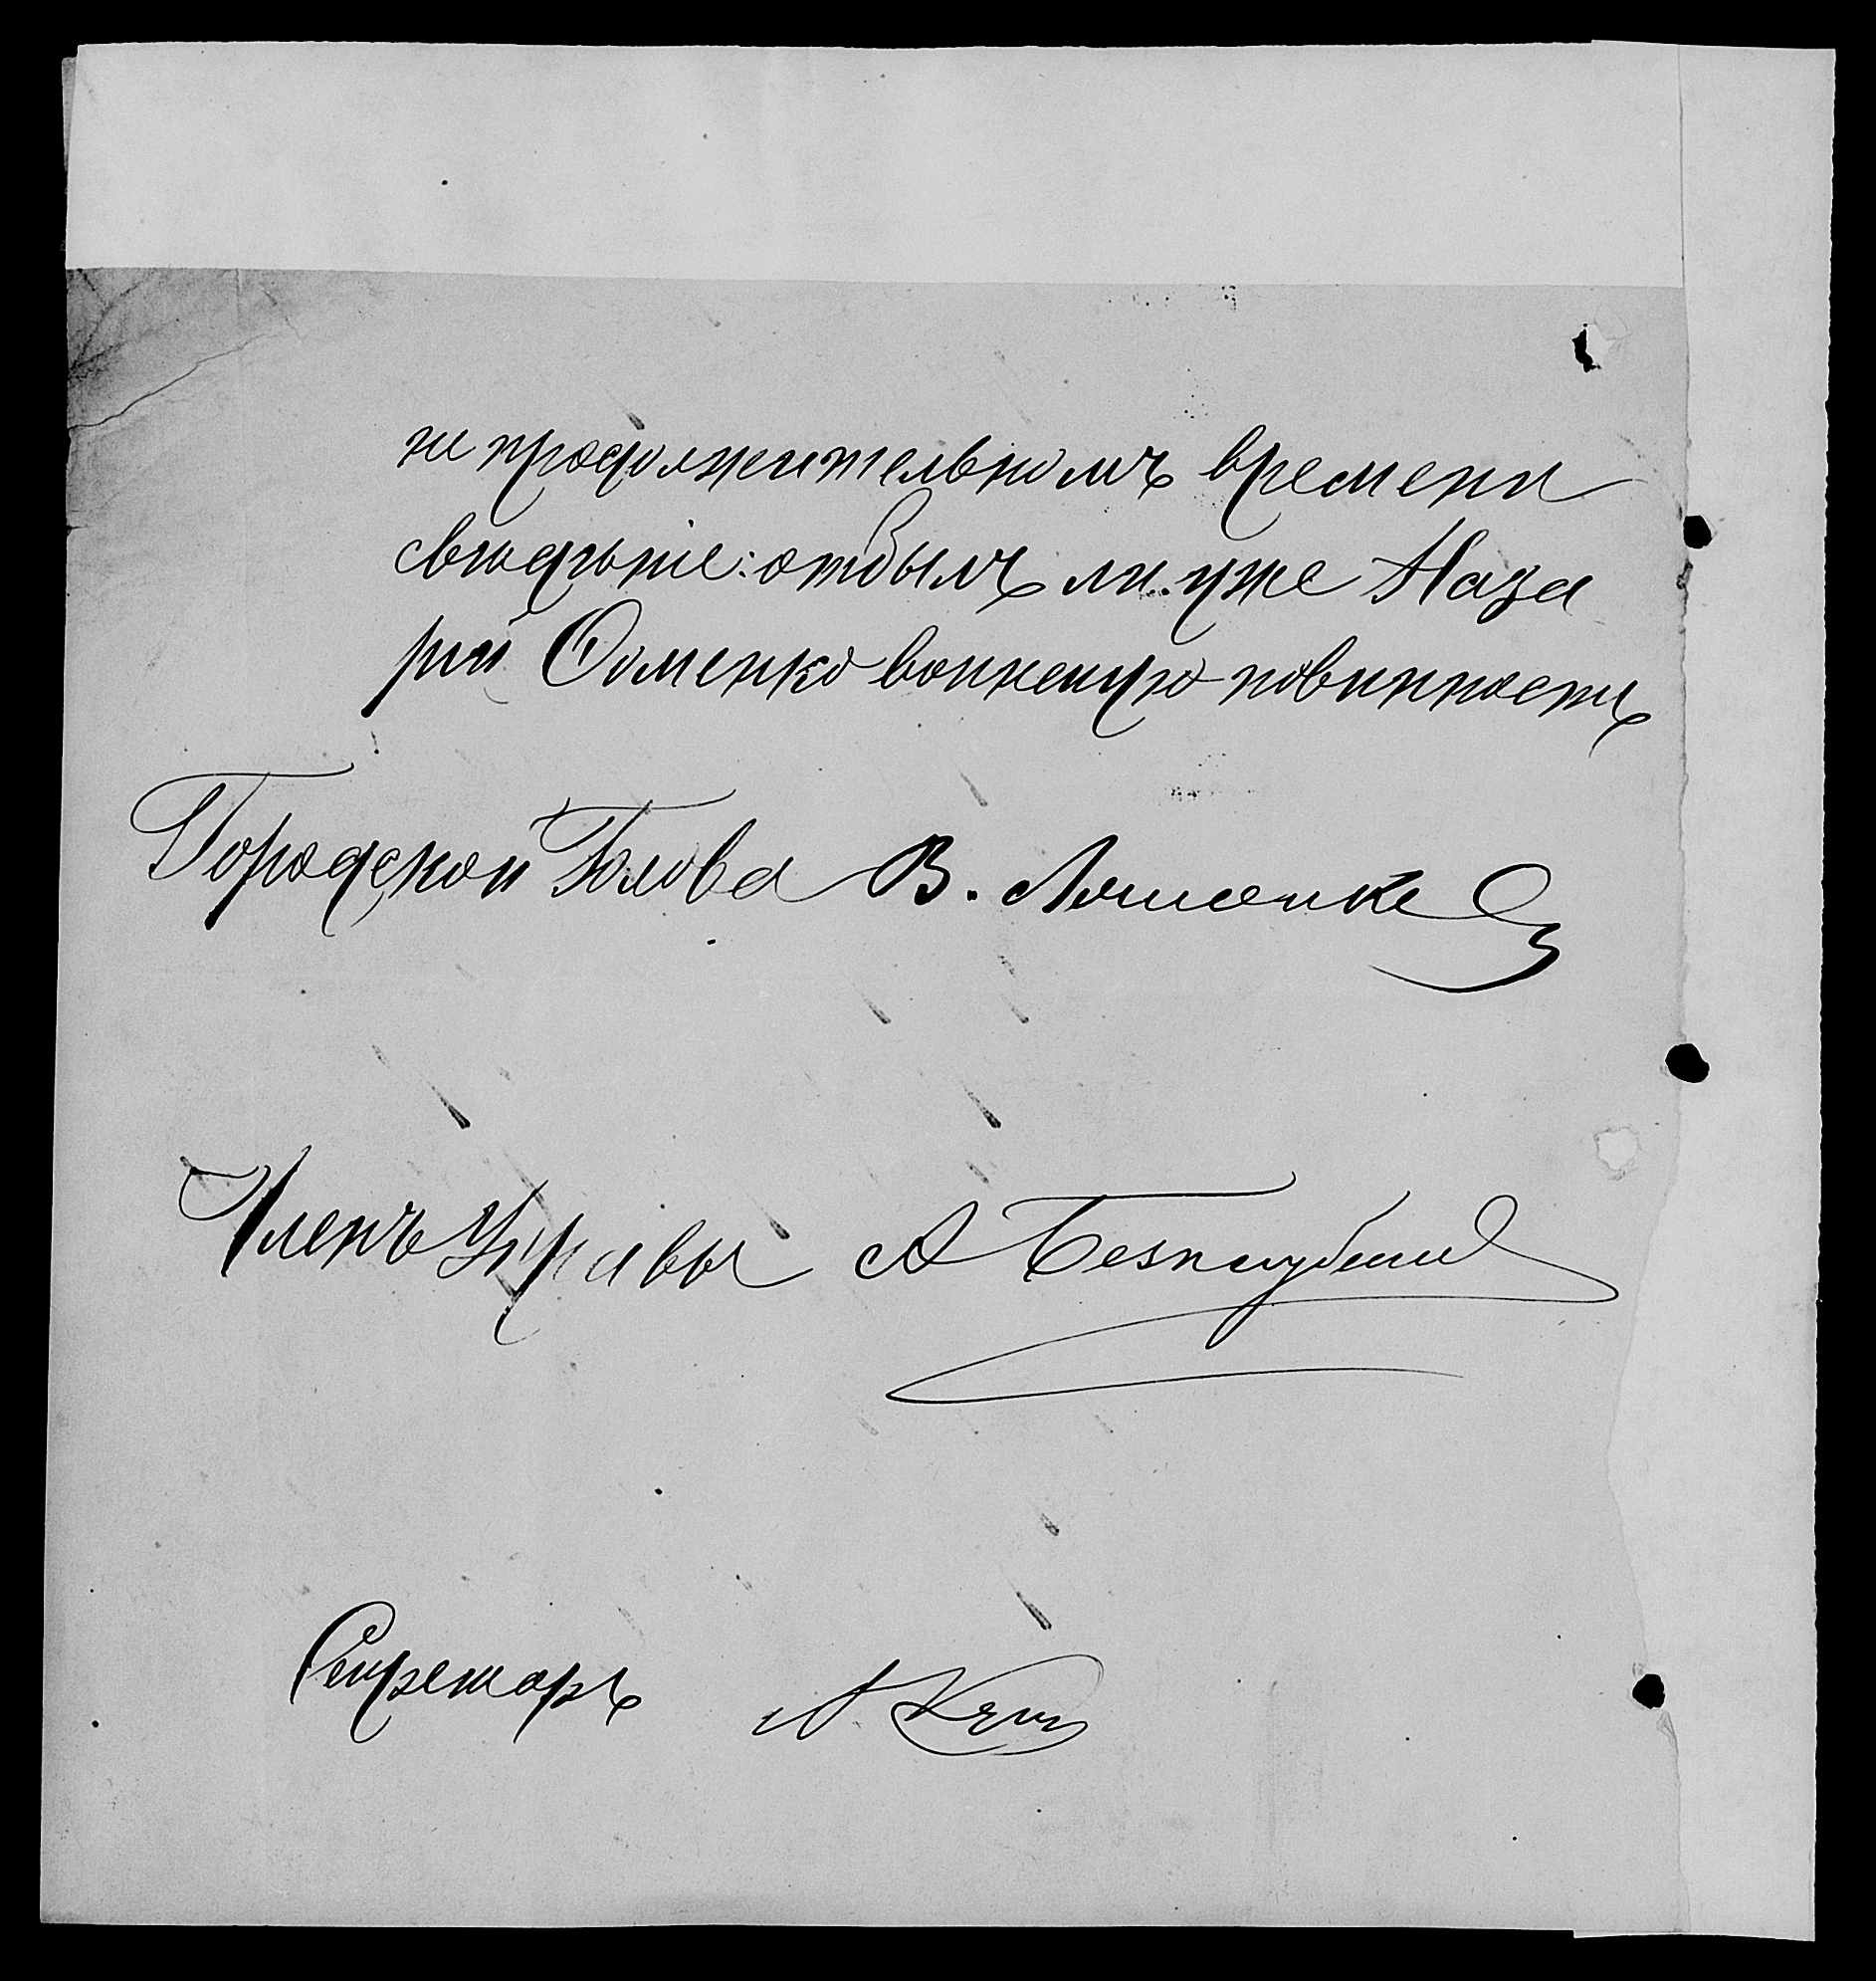 не продолжительномъ времени
свѣдѣніе: отбылъ ли уже Наза
рій Фоменко воинскую повинность
Городской Голова В. Ляшенко
Членъ Управы А Безпалый
Секретарь